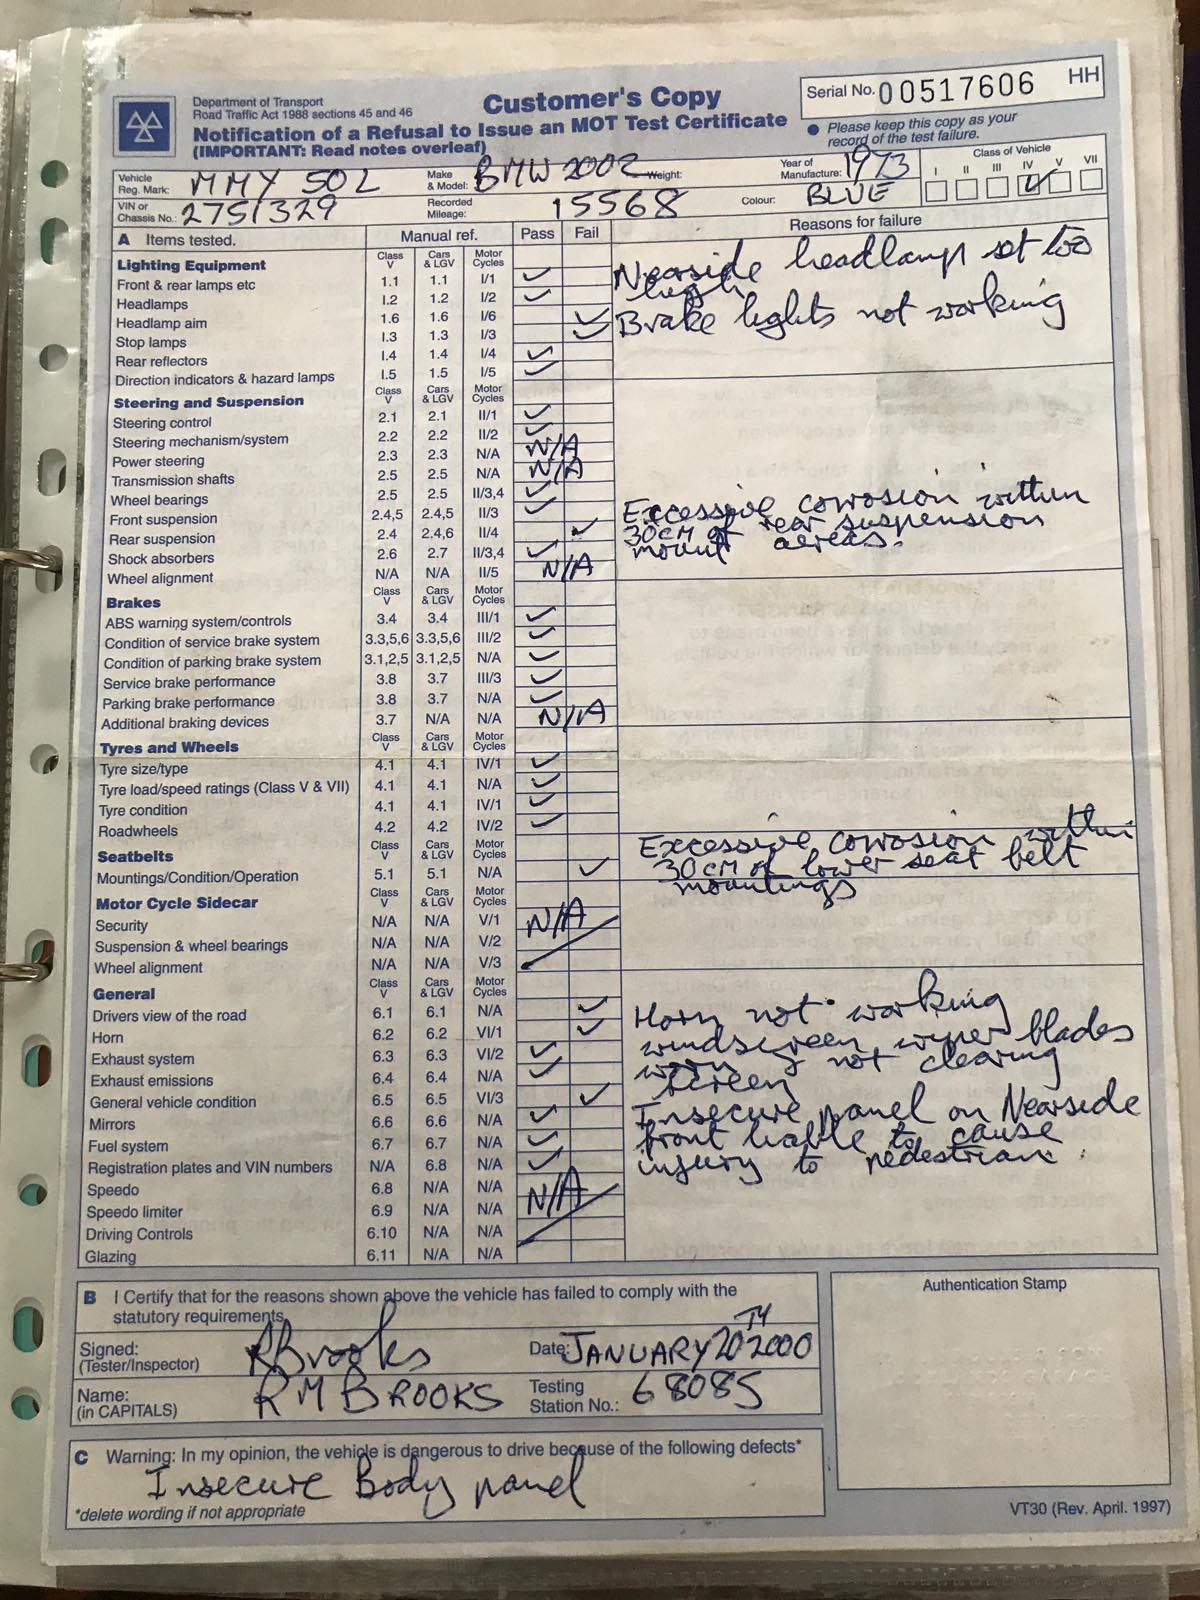 Department of Transport
Road Traffic Act 1988 sections 45 and 46
Customer's Copy
Notification of a Refusal to Issue an MOT Test Certificate
(IMPORTANT: Read notes overleaf)
Serial No. 00517606 HH
● Please keep this copy as your
record of the test failure.
Vehicle Reg. Mark: MMY 50L Make & Model: BMW 2002 Weight: Year of Manufacture: 1973
Class of Vehicle
I II III IV V VII
VIN or Chassis No.: 2751329 Recorded Mileage: 15568 Colour: BLUE
A Items tested. Manual ref. Pass Fail Reasons for failure
Lighting Equipment Class V Cars & LGV Motor Cycles
Front & rear lamps etc 1.1 1.1 I/1 ✓
Headlamps 1.2 1.2 I/2 ✓
Headlamp aim 1.6 1.6 I/6 ✓
Stop lamps 1.3 1.3 I/3 ✓
Rear reflectors 1.4 1.4 I/4 ✓
Direction indicators & hazard lamps 1.5 1.5 I/5 ✓
Nearside headlamp set too
high
Brake lights not working
Steering and Suspension Class V Cars & LGV Motor Cycles
Steering control 2.1 2.1 II/1 ✓
Steering mechanism/system 2.2 2.2 II/2 ✓
Power steering 2.3 2.3 N/A N/A
Transmission shafts 2.5 2.5 N/A N/A
Wheel bearings 2.5 2.5 II/3,4 ✓
Front suspension 2.4,5 2.4,5 II/3 ✓
Rear suspension 2.4 2.4,6 II/4 ✓
Shock absorbers 2.6 2.7 II/3,4 ✓
Wheel alignment N/A N/A II/5 N/A
Excessive corrosion within
30CM of rear suspension
mount aereas.
Brakes Class V Cars & LGV Motor Cycles
ABS warning system/controls 3.4 3.4 III/1 ✓
Condition of service brake system 3.3,5,6 3.3,5,6 III/2 ✓
Condition of parking brake system 3.1,2,5 3.1,2,5 N/A ✓
Service brake performance 3.8 3.7 III/3 ✓
Parking brake performance 3.8 3.7 N/A ✓
Additional braking devices 3.7 N/A N/A N/A
Tyres and Wheels Class V Cars & LGV Motor Cycles
Tyre size/type 4.1 4.1 IV/1 ✓
Tyre load/speed ratings (Class V & VII) 4.1 4.1 N/A ✓
Tyre condition 4.1 4.1 IV/1 ✓
Roadwheels 4.2 4.2 IV/2 ✓
Seatbelts Class V Cars & LGV Motor Cycles
Mountings/Condition/Operation 5.1 5.1 N/A ✓
Excessive corrosion within
30CM of lower seat belt
mountings
Motor Cycle Sidecar Class V Cars & LGV Motor Cycles
Security N/A N/A V/1 N/A
Suspension & wheel bearings N/A N/A V/2
Wheel alignment N/A N/A V/3
General Class V Cars & LGV Motor Cycles
Drivers view of the road 6.1 6.1 N/A ✓
Horn 6.2 6.2 VI/1 ✓
Exhaust system 6.3 6.3 VI/2 ✓
Exhaust emissions 6.4 6.4 N/A ✓
General vehicle condition 6.5 6.5 VI/3 ✓
Mirrors 6.6 6.6 N/A ✓
Fuel system 6.7 6.7 N/A ✓
Registration plates and VIN numbers N/A 6.8 N/A ✓
Speedo 6.8 N/A N/A N/A
Speedo limiter 6.9 N/A N/A
Driving Controls 6.10 N/A N/A
Glazing 6.11 N/A N/A
Horn not working
windscreen wiper blades
worn & not clearing
screen
Insecure panel on Nearside
front liable to cause
injury to pedestrian.
B I Certify that for the reasons shown above the vehicle has failed to comply with the
statutory requirements
Signed: (Tester/Inspector) RBrooks Date: JANUARY 20TH 2000
Name: (in CAPITALS) R M BROOKS Testing Station No.: 68085
Authentication Stamp
C Warning: In my opinion, the vehicle is dangerous to drive because of the following defects*
Insecure Body panel
*delete wording if not appropriate
VT30 (Rev. April. 1997)